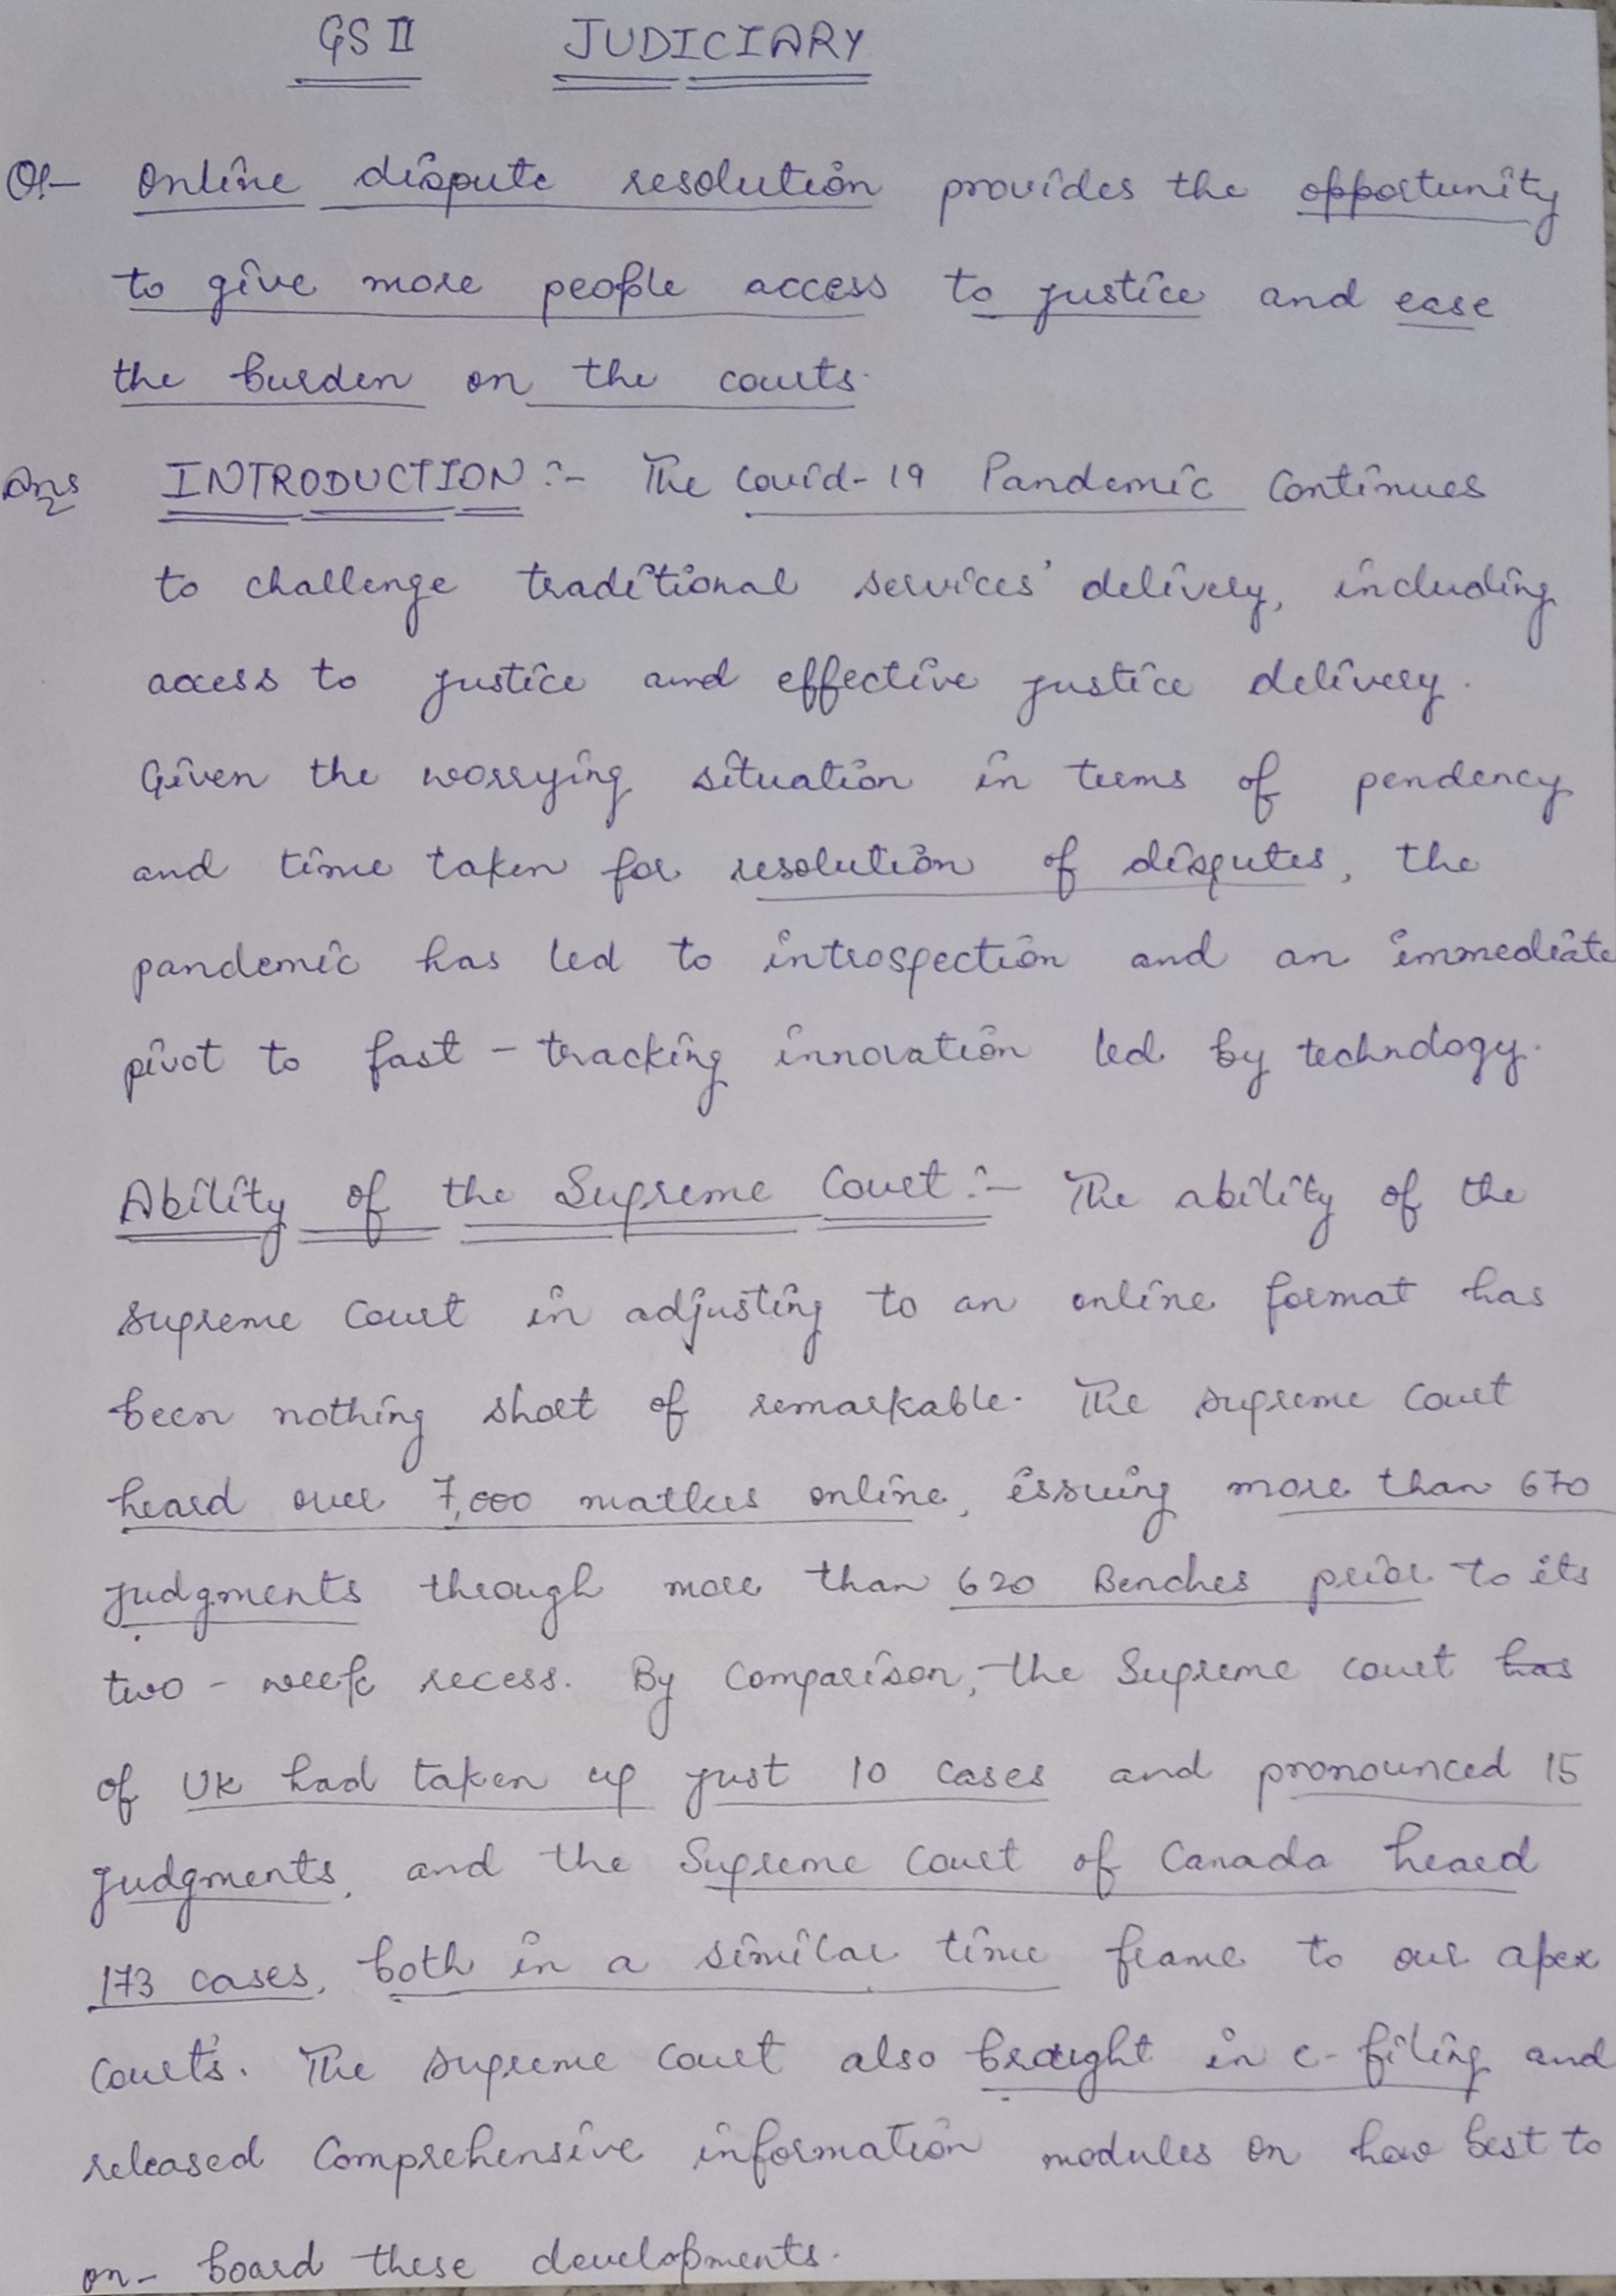 GS II JUDICIARY
Q1- Online dispute resolution provides the opportunity
to give more people access to justice and ease
the burden on the courts.
Ans INTRODUCTION :- The Covid-19 Pandemic Continues
to challenge traditional services' delivery, including
access to justice and effective justice delivery.
Given the worrying situation in terms of pendency
and time taken for resolution of disputes, the
pandemic has led to introspection and an immediate
pivot to fast-tracking innovation led by technology.
Ability of the Supreme Court :- The ability of the
supreme Court in adjusting to an online format has
been nothing short of remarkable. The supreme Court
heard over 7,000 matters online, issuing more than 670
judgments through more than 620 Benches prior to its
two-week recess. By Comparison, the Supreme court has
of UK had taken up just 10 cases and pronounced 15
judgments, and the Supreme court of Canada heard
173 cases, both in a similar time frame to our apex
Court's. The supreme court also brought in e-filing and
released Comprehensive information modules on how best to
on-board these developments.